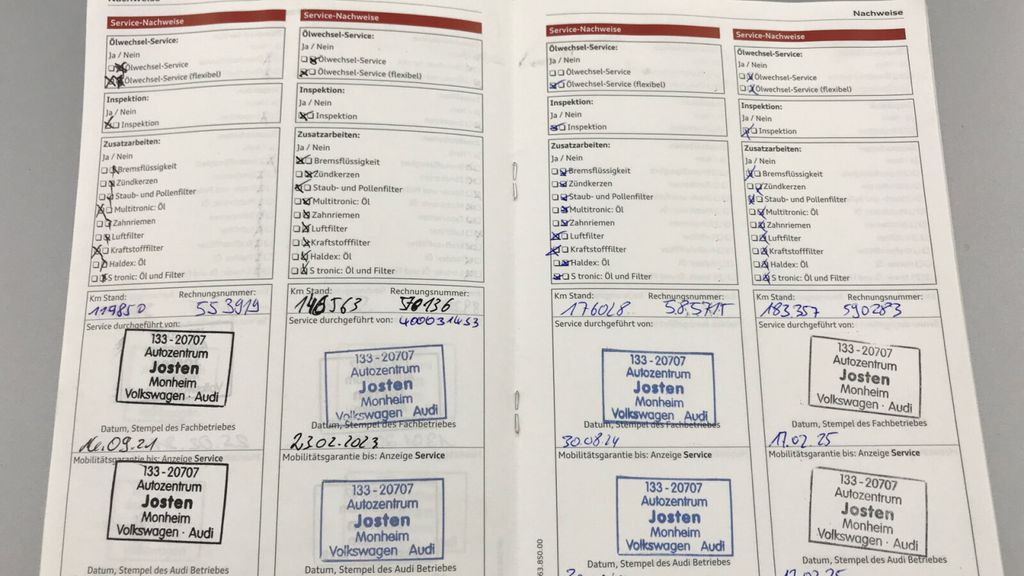 Nachweise
Service-Nachweise
Ölwechsel-Service:
Ja / Nein
Ölwechsel-Service
Ölwechsel-Service (flexibel)
Inspektion:
Ja / Nein
Inspektion
Zusatzarbeiten:
Ja / Nein
Bremsflüssigkeit
Zündkerzen
Staub- und Pollenfilter
Multitronic: Öl
Zahnriemen
Luftfilter
Kraftstofffilter
Haldex: Öl
S tronic: Öl und Filter
Km Stand: Rechnungsnummer:
119850 553919
Service durchgeführt von:
133-20707
Autozentrum
Josten
Monheim
Volkswagen · Audi
Datum, Stempel des Fachbetriebes
.09.21
Mobilitätsgarantie bis: Anzeige Service
133-20707
Autozentrum
Josten
Monheim
Volkswagen · Audi
Datum, Stempel des Audi Betriebes
Service-Nachweise
Ölwechsel-Service:
Ja / Nein
Ölwechsel-Service
Ölwechsel-Service (flexibel)
Inspektion:
Ja / Nein
Inspektion
Zusatzarbeiten:
Ja / Nein
Bremsflüssigkeit
Zündkerzen
Staub- und Pollenfilter
Multitronic: Öl
Zahnriemen
Luftfilter
Kraftstofffilter
Haldex: Öl
S tronic: Öl und Filter
Km Stand: Rechnungsnummer:
Service durchgeführt von: 400031453
133-20707
Autozentrum
Josten
Monheim
Volkswagen Audi
Datum, Stempel des Fachbetriebes
23.02.2023
Mobilitätsgarantie bis: Anzeige Service
133-20707
Autozentrum
Josten
Monheim
Volkswagen Audi
Datum, Stempel des Audi Betriebes
Nachweise
Service-Nachweise
Ölwechsel-Service:
Ja / Nein
Ölwechsel-Service
Ölwechsel-Service (flexibel)
Inspektion:
Ja / Nein
Inspektion
Zusatzarbeiten:
Ja / Nein
Bremsflüssigkeit
Zündkerzen
Staub- und Pollenfilter
Multitronic: Öl
Zahnriemen
Luftfilter
Kraftstofffilter
Haldex: Öl
S tronic: Öl und Filter
Km Stand: Rechnungsnummer:
176028
Service durchgeführt von:
133-20707
Autozentrum
Josten
Monheim
Volkswagen Audi
Datum, Stempel des Fachbetriebes
30.08.24
Mobilitätsgarantie bis: Anzeige Service
133-20707
Autozentrum
Josten
Monheim
Volkswagen Audi
Datum, Stempel des Audi Betriebes
63.850.00
Service-Nachweise
Ölwechsel-Service:
Ja / Nein
Ölwechsel-Service
Ölwechsel-Service (flexibel)
Inspektion:
Ja / Nein
Inspektion
Zusatzarbeiten:
Ja / Nein
Bremsflüssigkeit
Zündkerzen
Staub- und Pollenfilter
Multitronic: Öl
Zahnriemen
Luftfilter
Kraftstofffilter
Haldex: Öl
S tronic: Öl und Filter
Km Stand: Rechnungsnummer:
183357 590283
Service durchgeführt von:
133-20707
Autozentrum
Josten
Monheim
Volkswagen · Audi
Datum, Stempel des Fachbetriebes
17.02.25
Mobilitätsgarantie bis: Anzeige Service
133-20707
Autozentrum
Josten
Monheim
Volkswagen · Audi
Datum, Stempel des Audi Betriebes